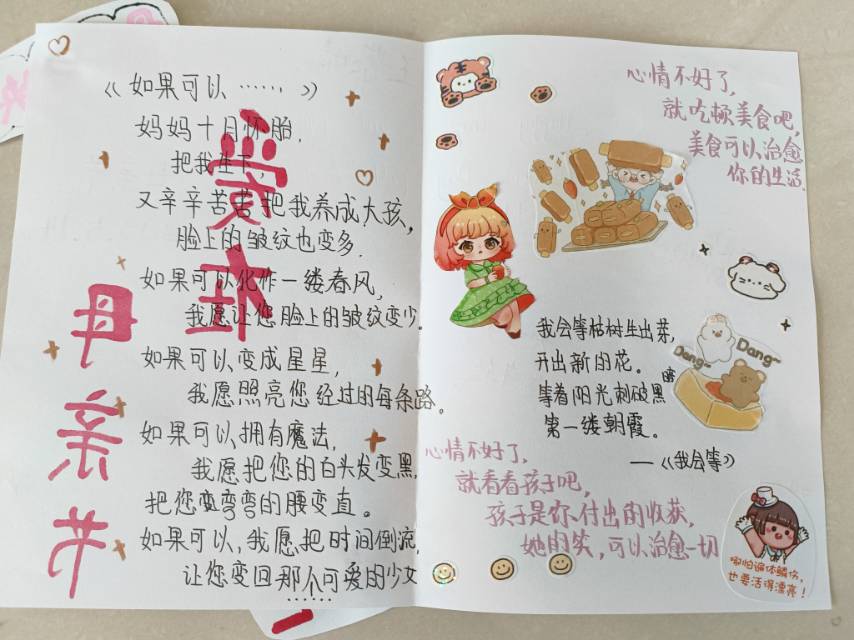 《如果可以……》
妈妈十月怀胎,
把我生下,
又辛辛苦苦把我养成大孩,
脸上的皱纹也变多.
如果可以化作一缕春风,
我愿让您脸上的皱纹变少.
如果可以变成星星,
我愿照亮您经过的每条路。
如果可以拥有魔法,
我愿把您的白头发变黑,
把您弯弯的腰变直。
如果可以,我愿把时间倒流,
让您变回那个可爱的少女
……
爱在
母亲节
心情不好了,
就吃顿美食吧,
美食可以治愈
你的生活.
Dang~
Dang~
我会等枯树生出芽,
开出新的花。
等着阳光刺破黑暗
第一缕朝霞。
—《我会等》
心情不好了,
就看看孩子吧,
孩子是你付出的收获,
她的笑,可以治愈一切
哪怕遍体鳞伤,
也要活得漂亮!